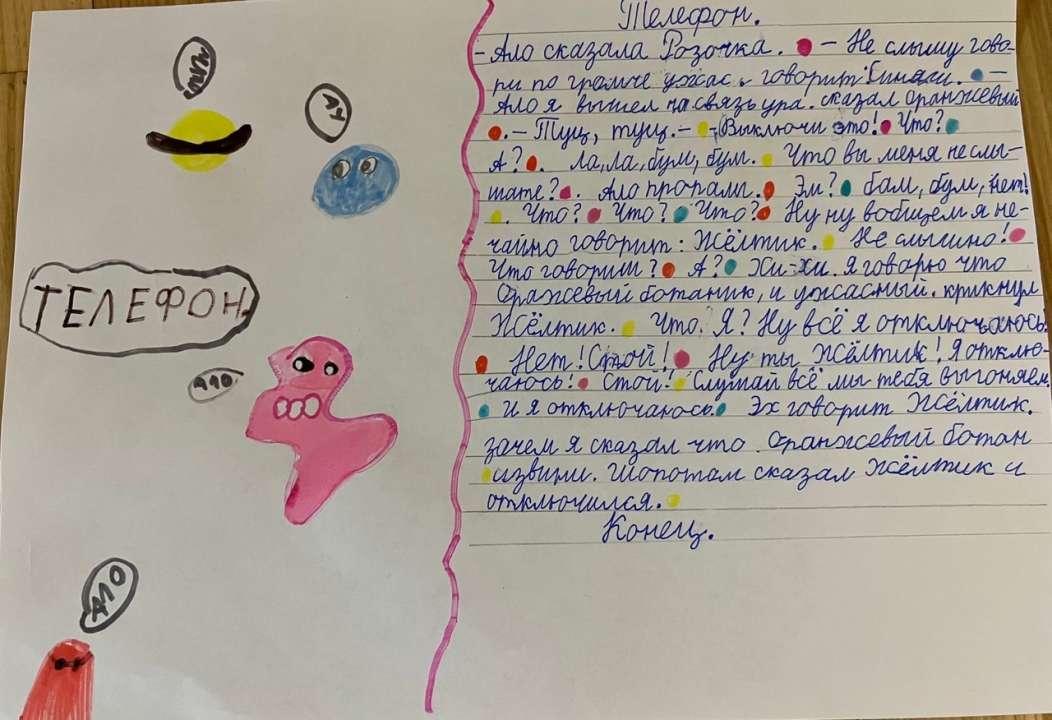 АЛО
ТЕЛЕФОН
АЛО
АЛО
Телефон.
- Ало сказала Розочка. - Не слышу гово-
ри по громче ужас. говорит: Синяги. -
Ало я вышел на связь ура. сказал оранжевый
. - Туц, туц. - - Выключи это! Что?
А? . Ла, ла, бум, бум. Что вы меня не слы-
шате? . Ало пропалы. Эм? бам, бум, нет!
. Что? Что? Что? Ну ну вобщем я не-
чайно говорит: Жёлтик. Не слышно!
Что говориш? А? Хи-хи. Я говорю что
Оражевый ботаник, и ужасный. крикнул
Жёлтик. Что. Я? Ну всё я отключаюсь.
Нет! Стой! Ну ты Жёлтик! Я отклю-
чаюсь! Стой! Слушай всё мы тебя выгоняем.
И я отключаюсь. Эх говорит Жёлтик.
зачем я сказал что оранжевый ботан
извини. Шопотам сказал Жёлтик и
отключился.
Конец.